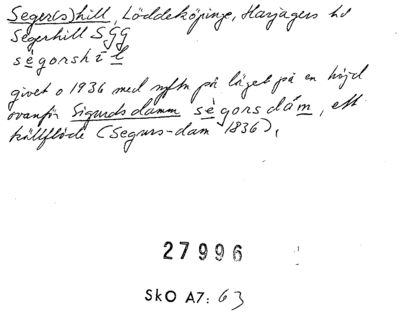 Seger(s)hill, Löddeköpinge, Harjagers hd
Segerhill SGg
sègorshìl
givet o 1936 med syftn på läget på en höjd
ovanför Sigurdsdamm sègorsdám, ett
källflöde (Segurs-dam 1836),
27996
SkO A7: 63